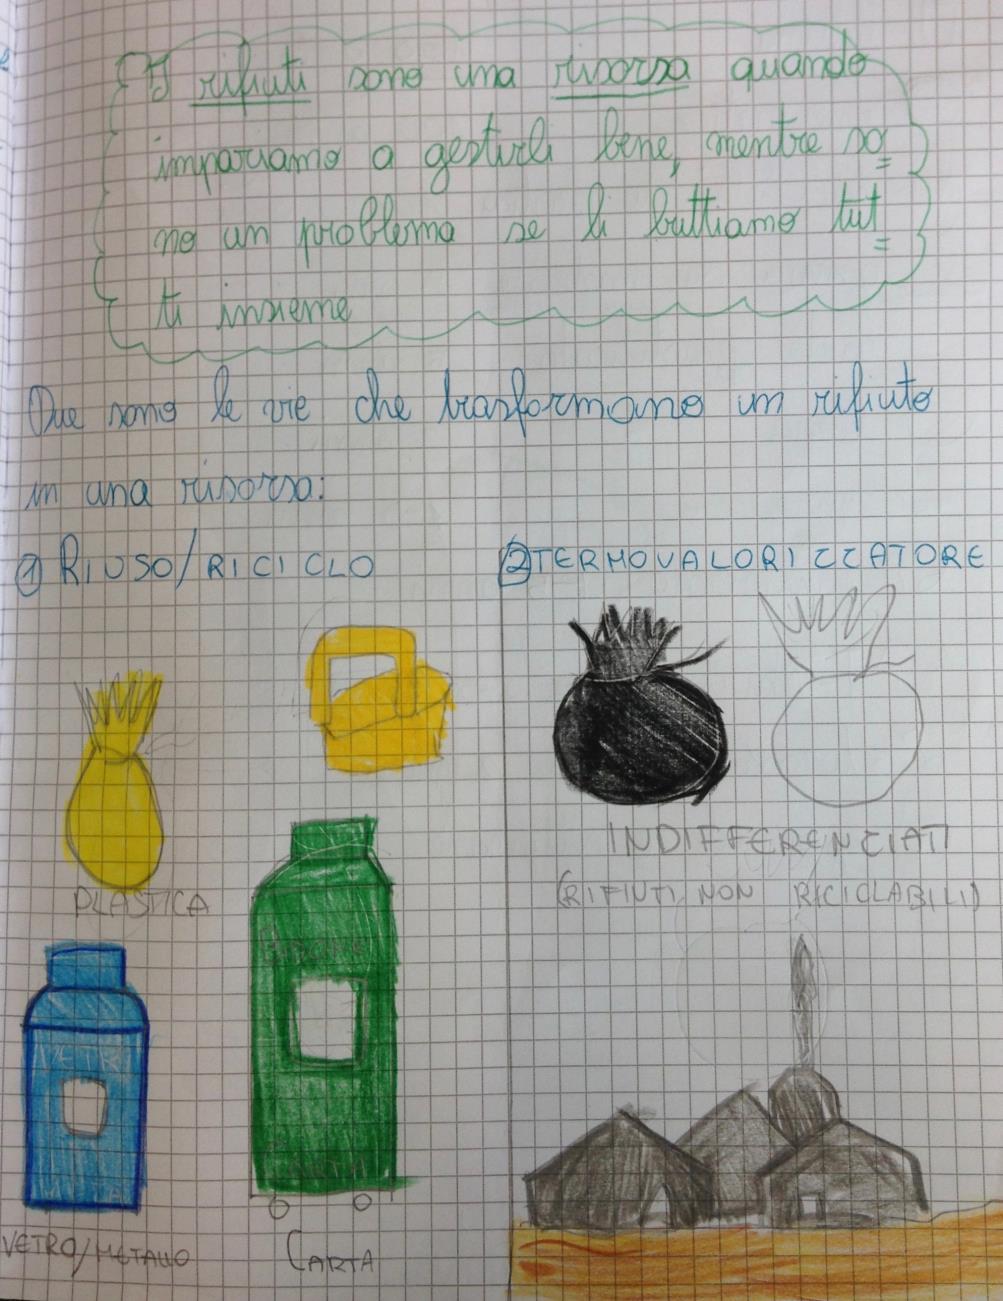 I rifiuti sono una risorsa quando
impariamo a gestirli bene, mentre so=
no un problema se li buttiamo tut=
ti insieme
Due sono le vie che trasformano un rifiuto
in una risorsa:
1 RIUSO/RICICLO
2 TERMOVALORIZZATORE
PLASTICA
INDIFFERENCIATI
(RIFIUTI NON RICICLABILI)
VETRO
CARTA
VETRO/METALLO
CARTA